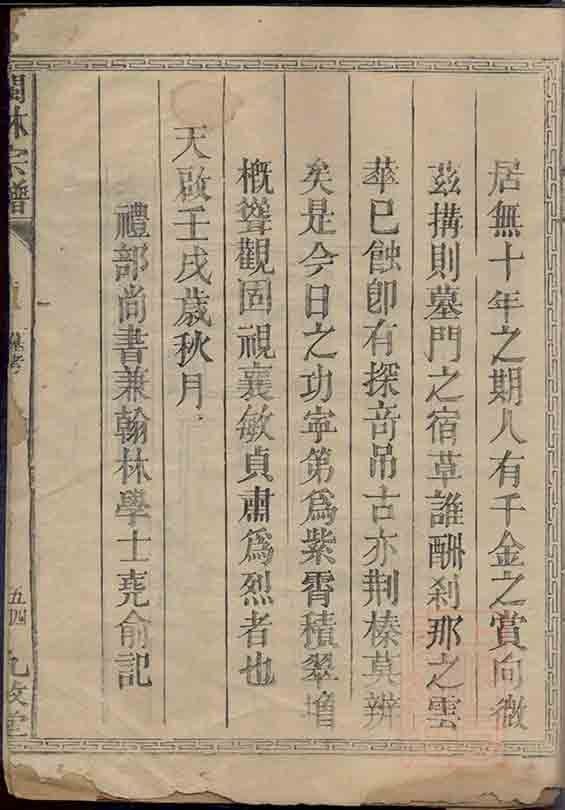 居無十年之期人有千金之賞向微
茲搆則墓門之宿草誰酬刹那之雲
華已蝕卽有探竒吊古亦荆榛莫辨
矣是今日之功寜第爲紫霄積翠增
概聳觀固視襄敏貞肅爲烈者也
天啟壬戌歲秋月
禮部尚書兼翰林學士堯俞記
閩林宗譜
墓考
五四
九牧堂